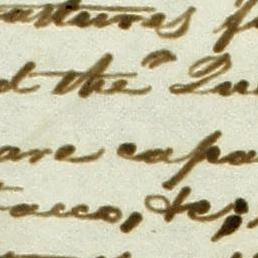 atures f
d the "Qu
are capa
acco, &c;